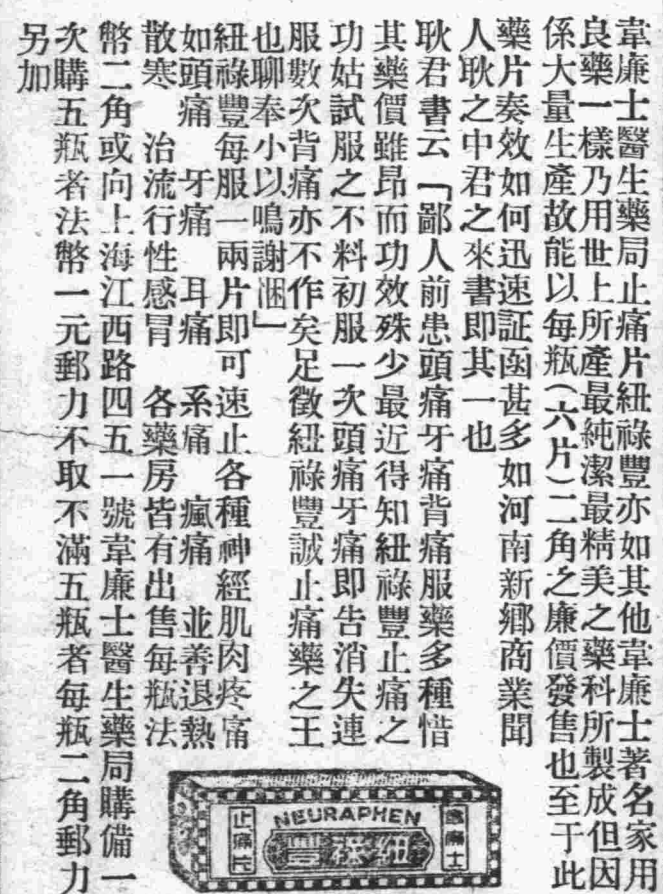 韋廉士醫生藥局止痛片紐祿豐亦如其他韋廉士著名家用
良藥一樣乃用世上所產最純潔最精美之藥科所製成但因
係大量生產故能以每瓶(六片)二角之廉價發售也至于此
藥片奏效如何迅速証函甚多如河南新鄉商業聞
人耿之中君之來書即其一也
耿君書云「鄙人前患頭痛牙痛背痛服藥多種惜
其藥價雖昂而功效殊少最近得知紐祿豐止痛之
功姑試服之不料初服一次頭痛牙痛即告消失連
服數次背痛亦不作矣足徵紐祿豐誠止痛藥之王
也聊奉小以鳴謝悃」
紐祿豐每服一兩片即可速止各種神經肌肉疼痛
如頭痛 牙痛 耳痛 系痛 瘋痛 並善退熱
散寒 治流行性感冒 各藥房皆有出售每瓶法
幣二角或向上海江西路四五一號韋廉士醫生藥局購備一
次購五瓶者法幣一元郵力不取不滿五瓶者每瓶二角郵力
另加
NEURAPHEN
紐祿豐
止痛片